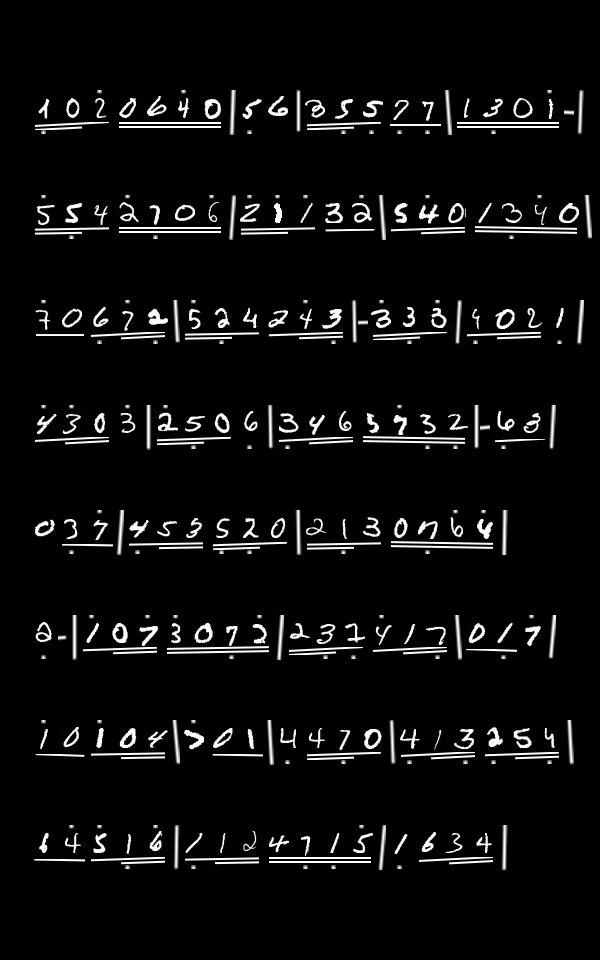 102 0640|56|355 77|1301-|
554 2706|21132|540 1340|
70 672|524 243|-333|4021|
430 3|2506|346 5732|-63|
0 37|453 520|213 0764|
2-|107 3072|232 417|017|
10 104|701|4470|413 254|
64 516|112 4715|1634|